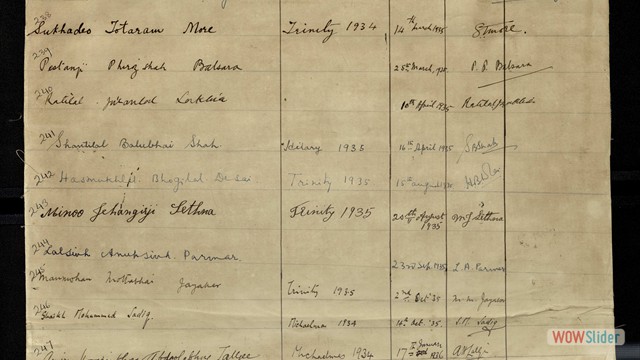 238
Sukhadeo Totaram More Trinity 1934 14th March 1935 STMore.
239
Pestanji Phirozshah Balsara 25th March, P. P. Balsara
240
Ratilal 10th April 1935
241
Shantilal Balubhai Shah Hilary 1935 16th April 1935 S B Shah
242
Hasmukhlal Bhogilal Desai Trinity 1935 15th August 1935
243
Minoo Jehangirji Sethna Trinity 1935 20th August 1935 M J Sethna
244
Lalsinh Anupsinh Parmar. 23rd Sep. 1935 L. A. Parmar
245
Manmohan Motabhai Jayaker Trinity 1935 2nd Oct '35 M. M. Jayaker
246
Shaikh Mohammed Sadiq. Michaelmas 1934 16th Oct. '35. S. M. Sadiq
247
Michaelmas 1934 17th 1936
WOWSlider